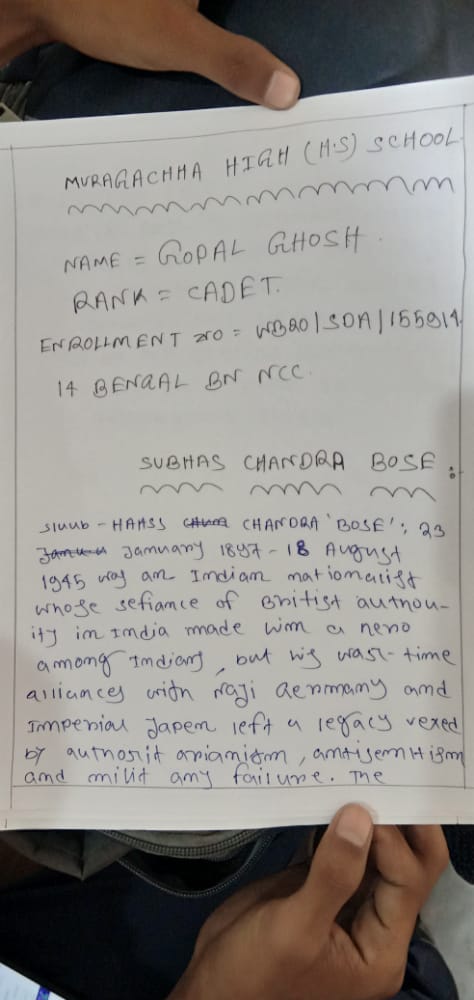 MURAGACHHA HIGH (H.S) SCHOOL
NAME = GOPAL GHOSH.
RANK = CADET.
ENROLLMENT NO = WB20/SDA/155914
14 BENGAL BN NCC.
SUBHAS CHANDRA BOSE :
CHANDRA 'BOSE'; 23
January 1897 - 18 August
1945 was an Indian nationalist
whose sefiance of Britist authou-
ity in India made wim a nero
among Indians, but his wasr-time
alliances with Nazi Germany and
Imperial Japen left a legacy vexed
by authorit arianism, antisemitism
and milit any failure. The